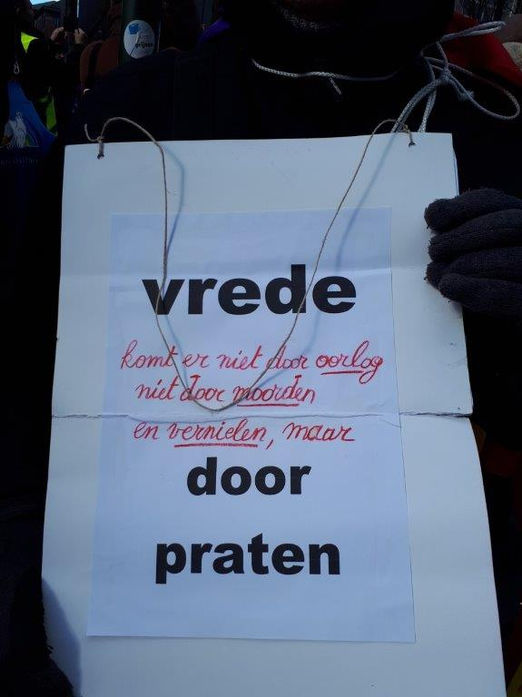 vrede
komt er niet door oorlog
niet door moorden
en vernielen, maar
door
praten